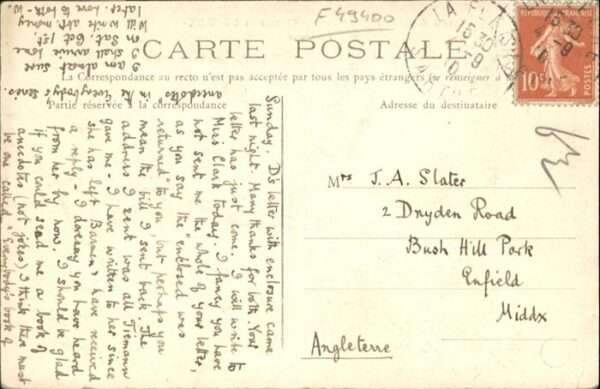 F49400
CARTE POSTALE
La Correspondance au recto n'est pas acceptée par tous les pays étrangers (se renseigner à
Partie réservée à la correspondance
Adresse du destinataire
10c
Mrs J. A. Slater
2 Dryden Road
Bush Hill Park
Enfield
Middx
Angleterre
Sunday. D's letter with enclosure came
last night. Many thanks for both. Your
letter has just come. I will write to
Miss Clark today. I fancy you have
not sent me the whole of your letter,
as you say the "enclosed was
returned" to you, but perhaps you
mean the bill I sent back. The
address I sent was all Tiemann
gave me - I have written to her since
she has left Barmen & have received
a reply - I daresay you have heard
from her by now. I should be glad
if you could send me a book of
anecdotes (not jokes) I think there must
be one called "Everybody's book of
anecdotes in the Everybody's series.
I am almost sure
I shall arrive home
on Sat. Oct 1st.
Will write abt. money
later. Love to both. W.